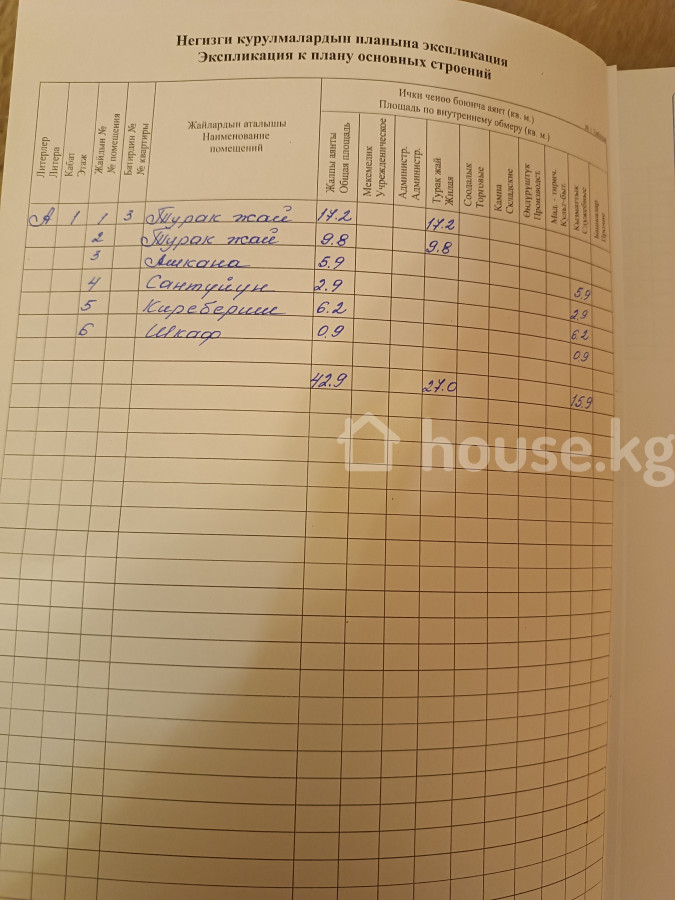 Негизги курулмалардын планына экспликация
Экспликация к плану основных строений
Литерлер
Литера
Кабат
Этаж
Жайдын №
№ помещения
Батирдин №
№ квартиры
Жайлардын аталышы
Наименование
помещений
Ички ченөө боюнча аянт (кв. м.)
Площадь по внутреннему обмеру (кв. м.)
Жалпы аянты
Общая площадь
Мекемелик
Учрежденическое
Администр.
Администр.
Турак жай
Жилая
Соодалык
Торговые
Кампа
Складские
Өндүрүштүк
Производст.
Мад. - тирич.
Культ-быт.
Служебные
Прочие
А 1 1 3 Турак жай 17.2 17.2
2 Турак жай 9.8 9.8
3 Ашкана 5.9 5.9
4 Сантүйүн 2.9 2.9
5 Киребериш 6.2 6.2
6 Шкаф 0.9 0.9
42.9 27.0 15.9
house.kg